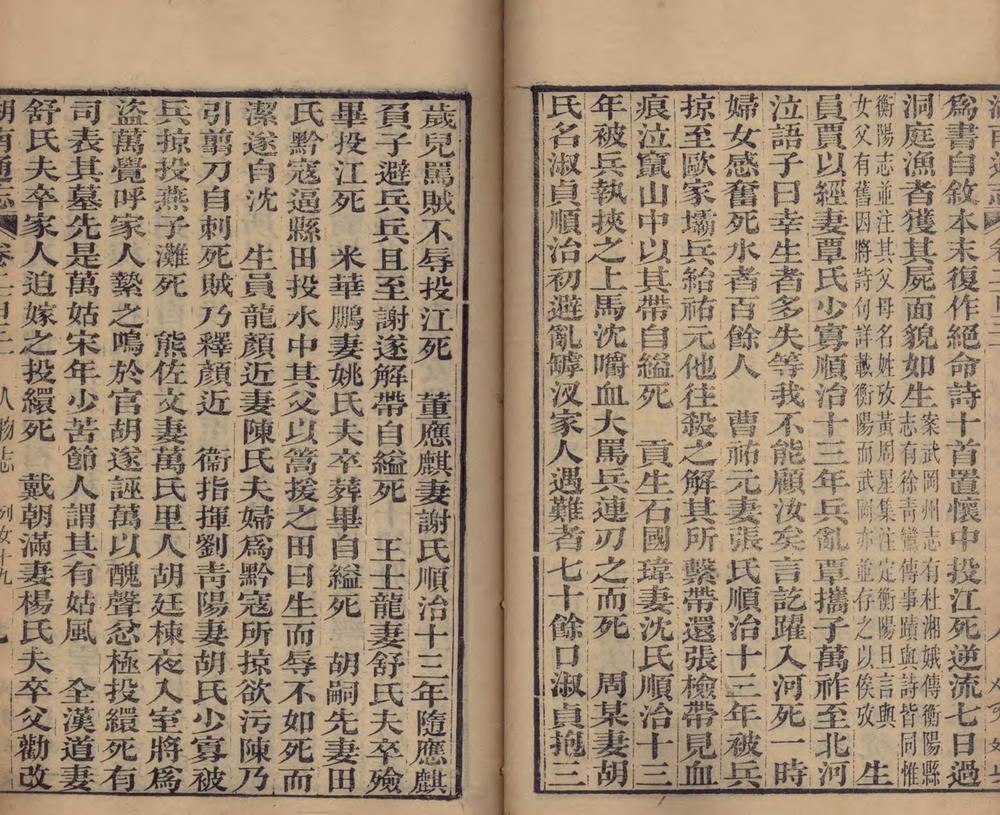 爲書自敘本末復作絕命詩十首置懷中投江死逆流七日過
洞庭漁者獲其屍面貌如生案武岡州志有杜湘娥傳衡陽縣志有徐靑鸞傳事蹟與詩皆同惟
衡陽志並注其父母名姓攷黃周星集注定衡陽日言與女父有舊因將詩句詳載衡陽而武岡亦並存之以俟攷 生
員賈以經妻覃氏少寡順治十三年兵亂覃攜子萬祚至北河
泣語子曰幸生者多失等我不能顧汝矣言訖躍入河死一時
婦女感奮死水者百餘人 曹祐元妻張氏順治十三年被兵
掠至歐家壩兵紿祐元他往殺之解其所繫帶還張檢帶見血
痕泣竄山中以其帶自縊死 貢生石國瑋妻沈氏順治十三
年被兵執挾之上馬沈嚼血大罵兵連刃之而死 周某妻胡
氏名淑貞順治初避亂罅汊家人遇難者七十餘口淑貞抱三
歲兒罵賊不辱投江死 董應麒妻謝氏順治十三年隨應麒
負子避兵兵且至謝遂解帶自縊死 王士龍妻舒氏夫卒殮
畢投江死 米華鵬妻姚氏夫卒葬畢自縊死 胡嗣先妻田
氏黔寇逼縣田投水中其父以篙援之田曰生而辱不如死而
潔遂自沈 生員龍顏近妻陳氏夫婦爲黔寇所掠欲污陳乃
引剪刀自刺死賊乃釋顏近 衞指揮劉靑陽妻胡氏少寡被
兵掠投燕子灘死 熊佐文妻萬氏里人胡廷棟夜入室將爲
盜萬覺呼家人縶之鳴於官胡遂誣萬以醜聲忿極投繯死有
司表其墓先是萬姑宋年少苦節人謂其有姑風 全漢道妻
舒氏夫卒家人迫嫁之投繯死 戴朝滿妻楊氏夫卒父勸改
湖南通志 人物志 列女十九